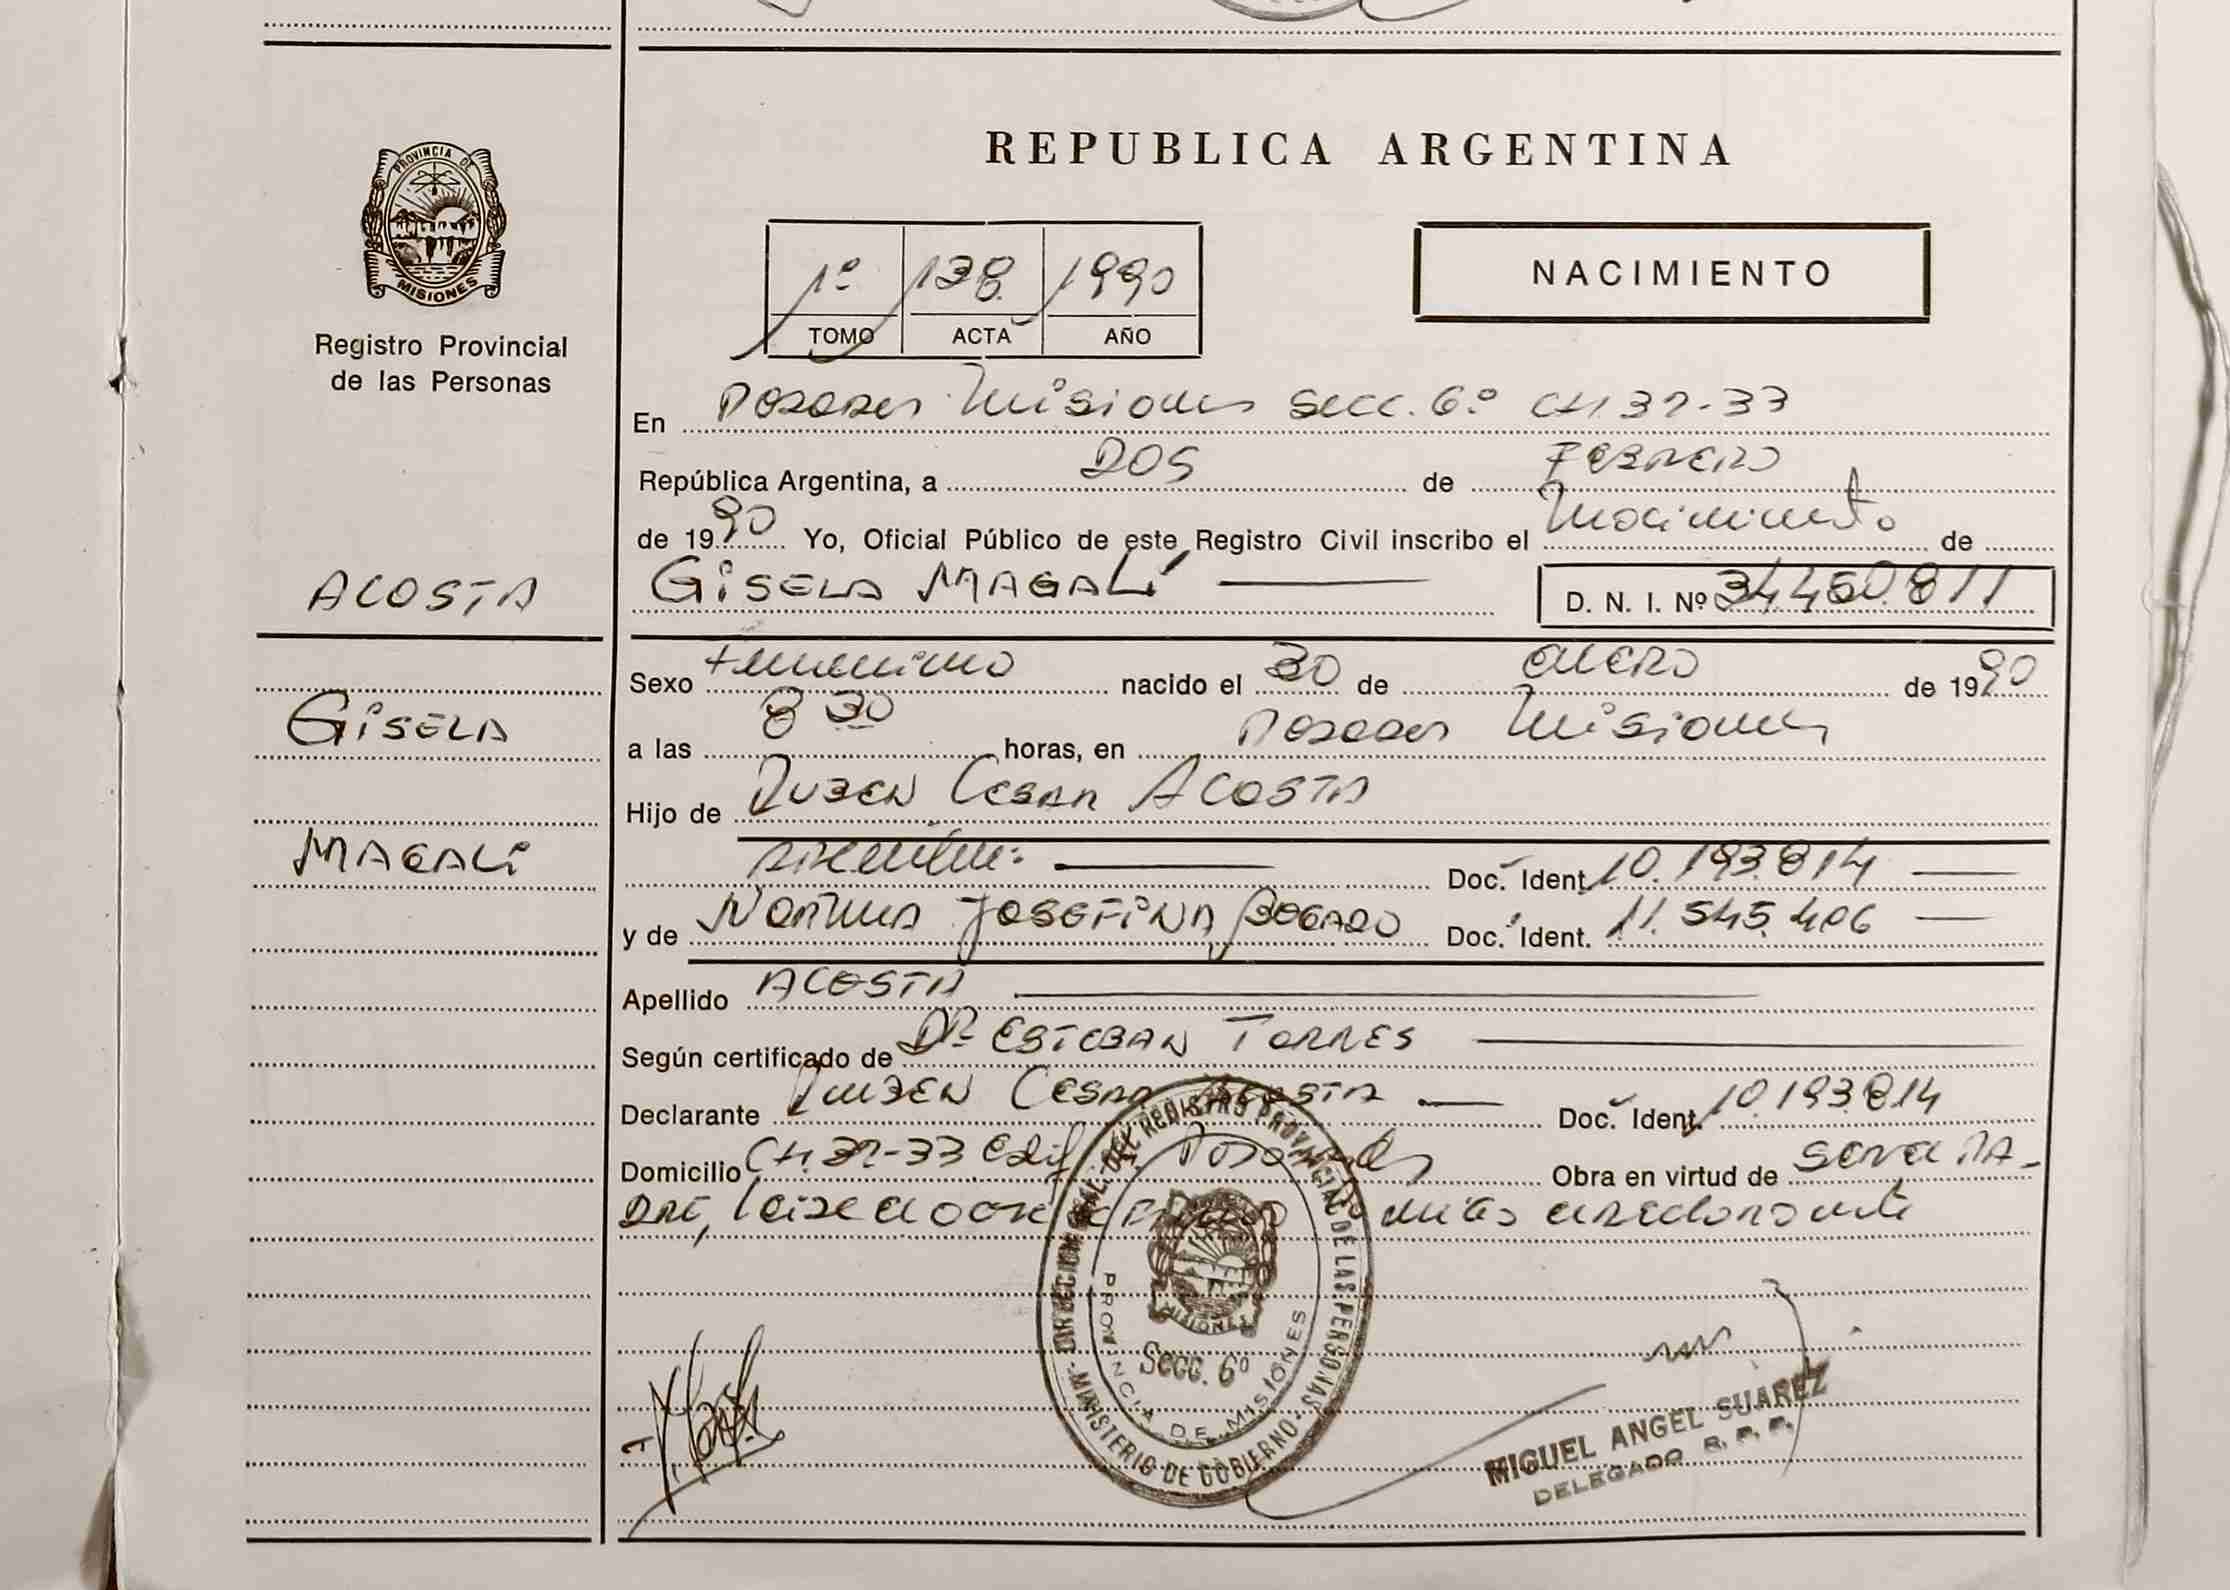 REPUBLICA ARGENTINA
PROVINCIA DE
MISIONES
Registro Provincial
de las Personas
1º 138 1990
TOMO ACTA AÑO
NACIMIENTO
En Posadas Misiones Secc. 6º CH. 32-33
República Argentina, a DOS de FEBRERO
de 1990 Yo, Oficial Público de este Registro Civil inscribo el Nacimiento de
ACOSTA
GISELA MAGALÍ D. N. I. Nº 34450.811
Sexo Femenino nacido el 30 de enero de 1990
GISELA
a las 8 30 horas, en Posadas Misiones
Hijo de RUBEN CESAR ACOSTA
MAGALÍ
argentino. Doc. Ident. 10.193.814
y de NORMA JOSEFINA BOGADO Doc. Ident. 11.545.406
Apellido ACOSTA
Según certificado de Dr ESTEBAN TORRES
Declarante RUBEN CESAR ACOSTA Doc. Ident. 10.193.814
Domicilio CH. 32-33 Edif Posadas Obra en virtud de ser el PA-
DRE,
DIRECCION GRAL. DEL REGISTRO PROVINCIAL DE LAS PERSONAS
MINISTERIO DE GOBIERNO
PROVINCIA DE MISIONES
MISIONES
Secc. 6º
MIGUEL ANGEL SUAREZ
DELEGADO R. P. P.